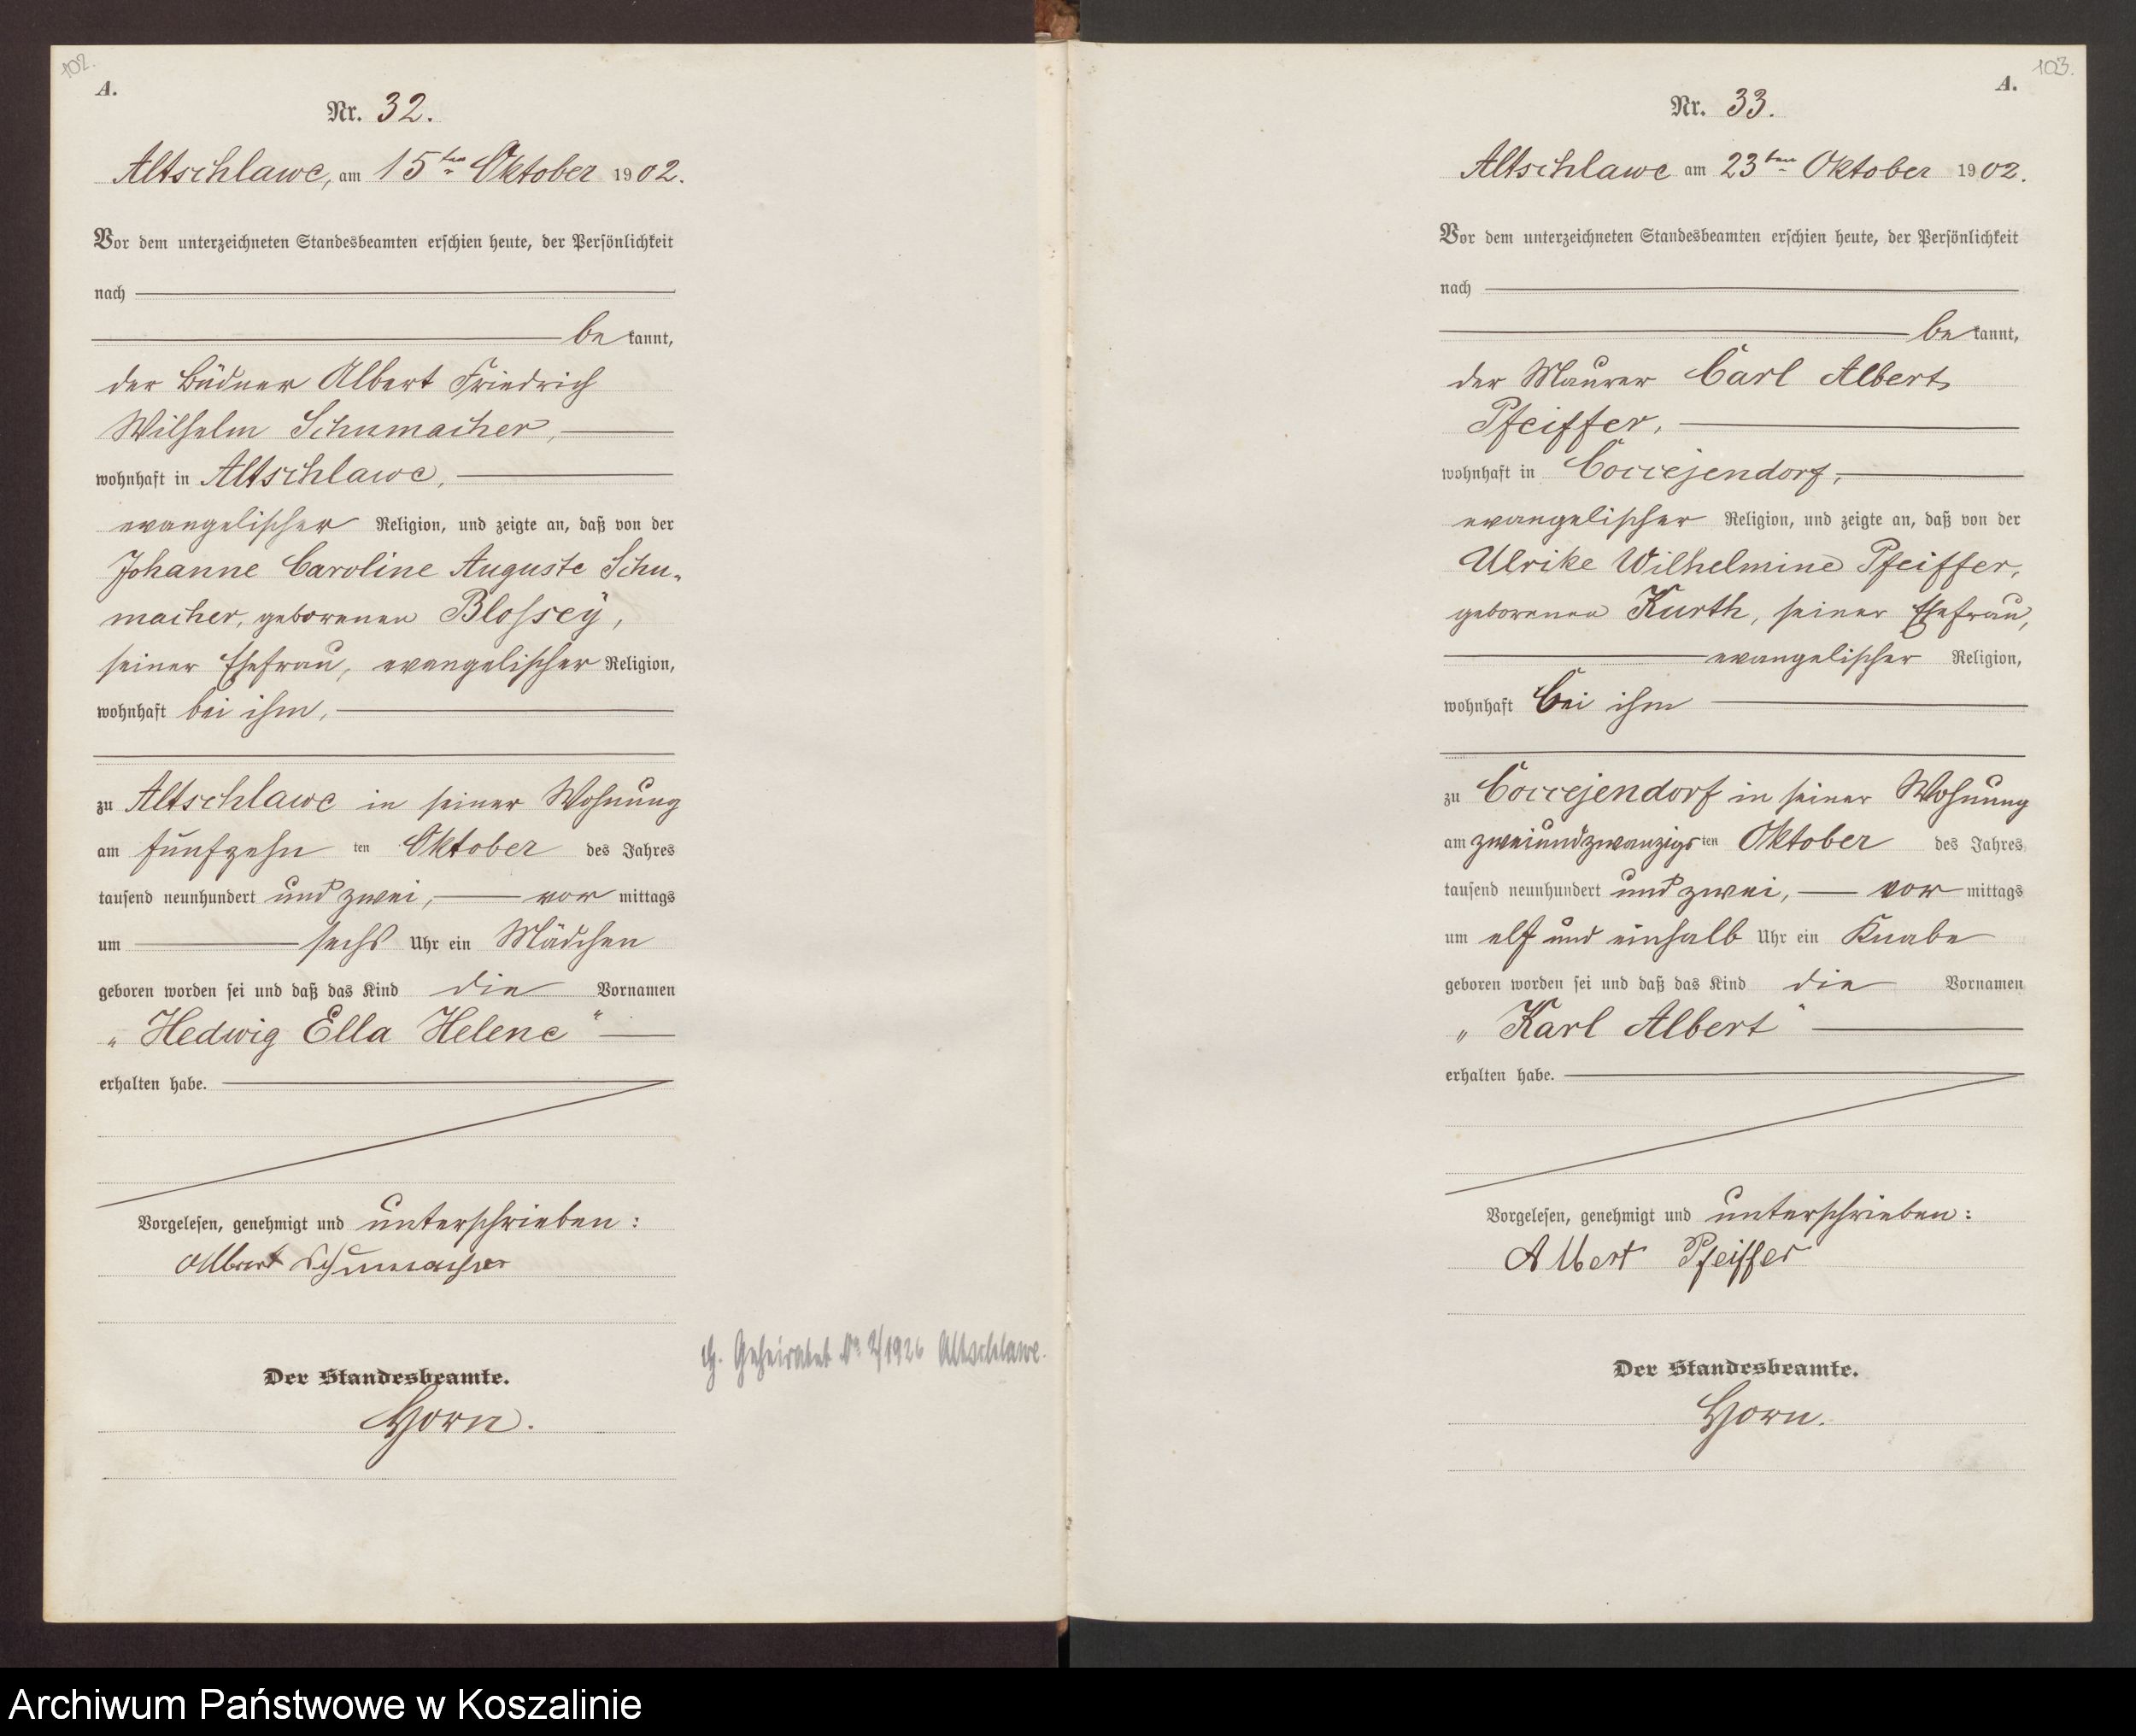 102.
A.
Nr. 32.
Altschlawe, am 15ten Oktober 1902.
Vor dem unterzeichneten Standesbeamten erschien heute, der Persönlichkeit
nach
be kannt,
der Büdner Albert Friedrich
Wilhelm Schumacher,
wohnhaft in Altschlawe,
evangelischer Religion, und zeigte an, daß von der
Johanne Caroline Auguste Schu-
macher, geborenen Blossey,
seiner Ehefrau, evangelischer Religion,
wohnhaft bei ihm,
zu Altschlawe in seiner Wohnung
am fünfzehn ten Oktober des Jahres
tausend neunhundert und zwei, vor mittags
um sechs Uhr ein Mädchen
geboren worden sei und daß das Kind die Vornamen
„Hedwig Ella Helene“
erhalten habe.
Vorgelesen, genehmigt und unterschrieben:
Albert Schumacher
Geheiratet No 2/1926 Altschlawe.
Der Standesbeamte.
Horn.
103.
A.
Nr. 33.
Altschlawe am 23ten Oktober 1902.
Vor dem unterzeichneten Standesbeamten erschien heute, der Persönlichkeit
nach
be kannt,
der Maurer Carl Albert
Pfeiffer,
wohnhaft in Coccejendorf,
evangelischer Religion, und zeigte an, daß von der
Ulrike Wilhelmine Pfeiffer,
geborenen Kurth, seiner Ehefrau,
evangelischer Religion,
wohnhaft bei ihm
zu Coccejendorf in seiner Wohnung
am zweiundzwanzigsten Oktober des Jahres
tausend neunhundert und zwei, vor mittags
um elf und einhalb Uhr ein Knabe
geboren worden sei und daß das Kind die Vornamen
„Karl Albert“
erhalten habe.
Vorgelesen, genehmigt und unterschrieben:
Albert Pfeiffer
Der Standesbeamte.
Horn.
Archiwum Państwowe w Koszalinie